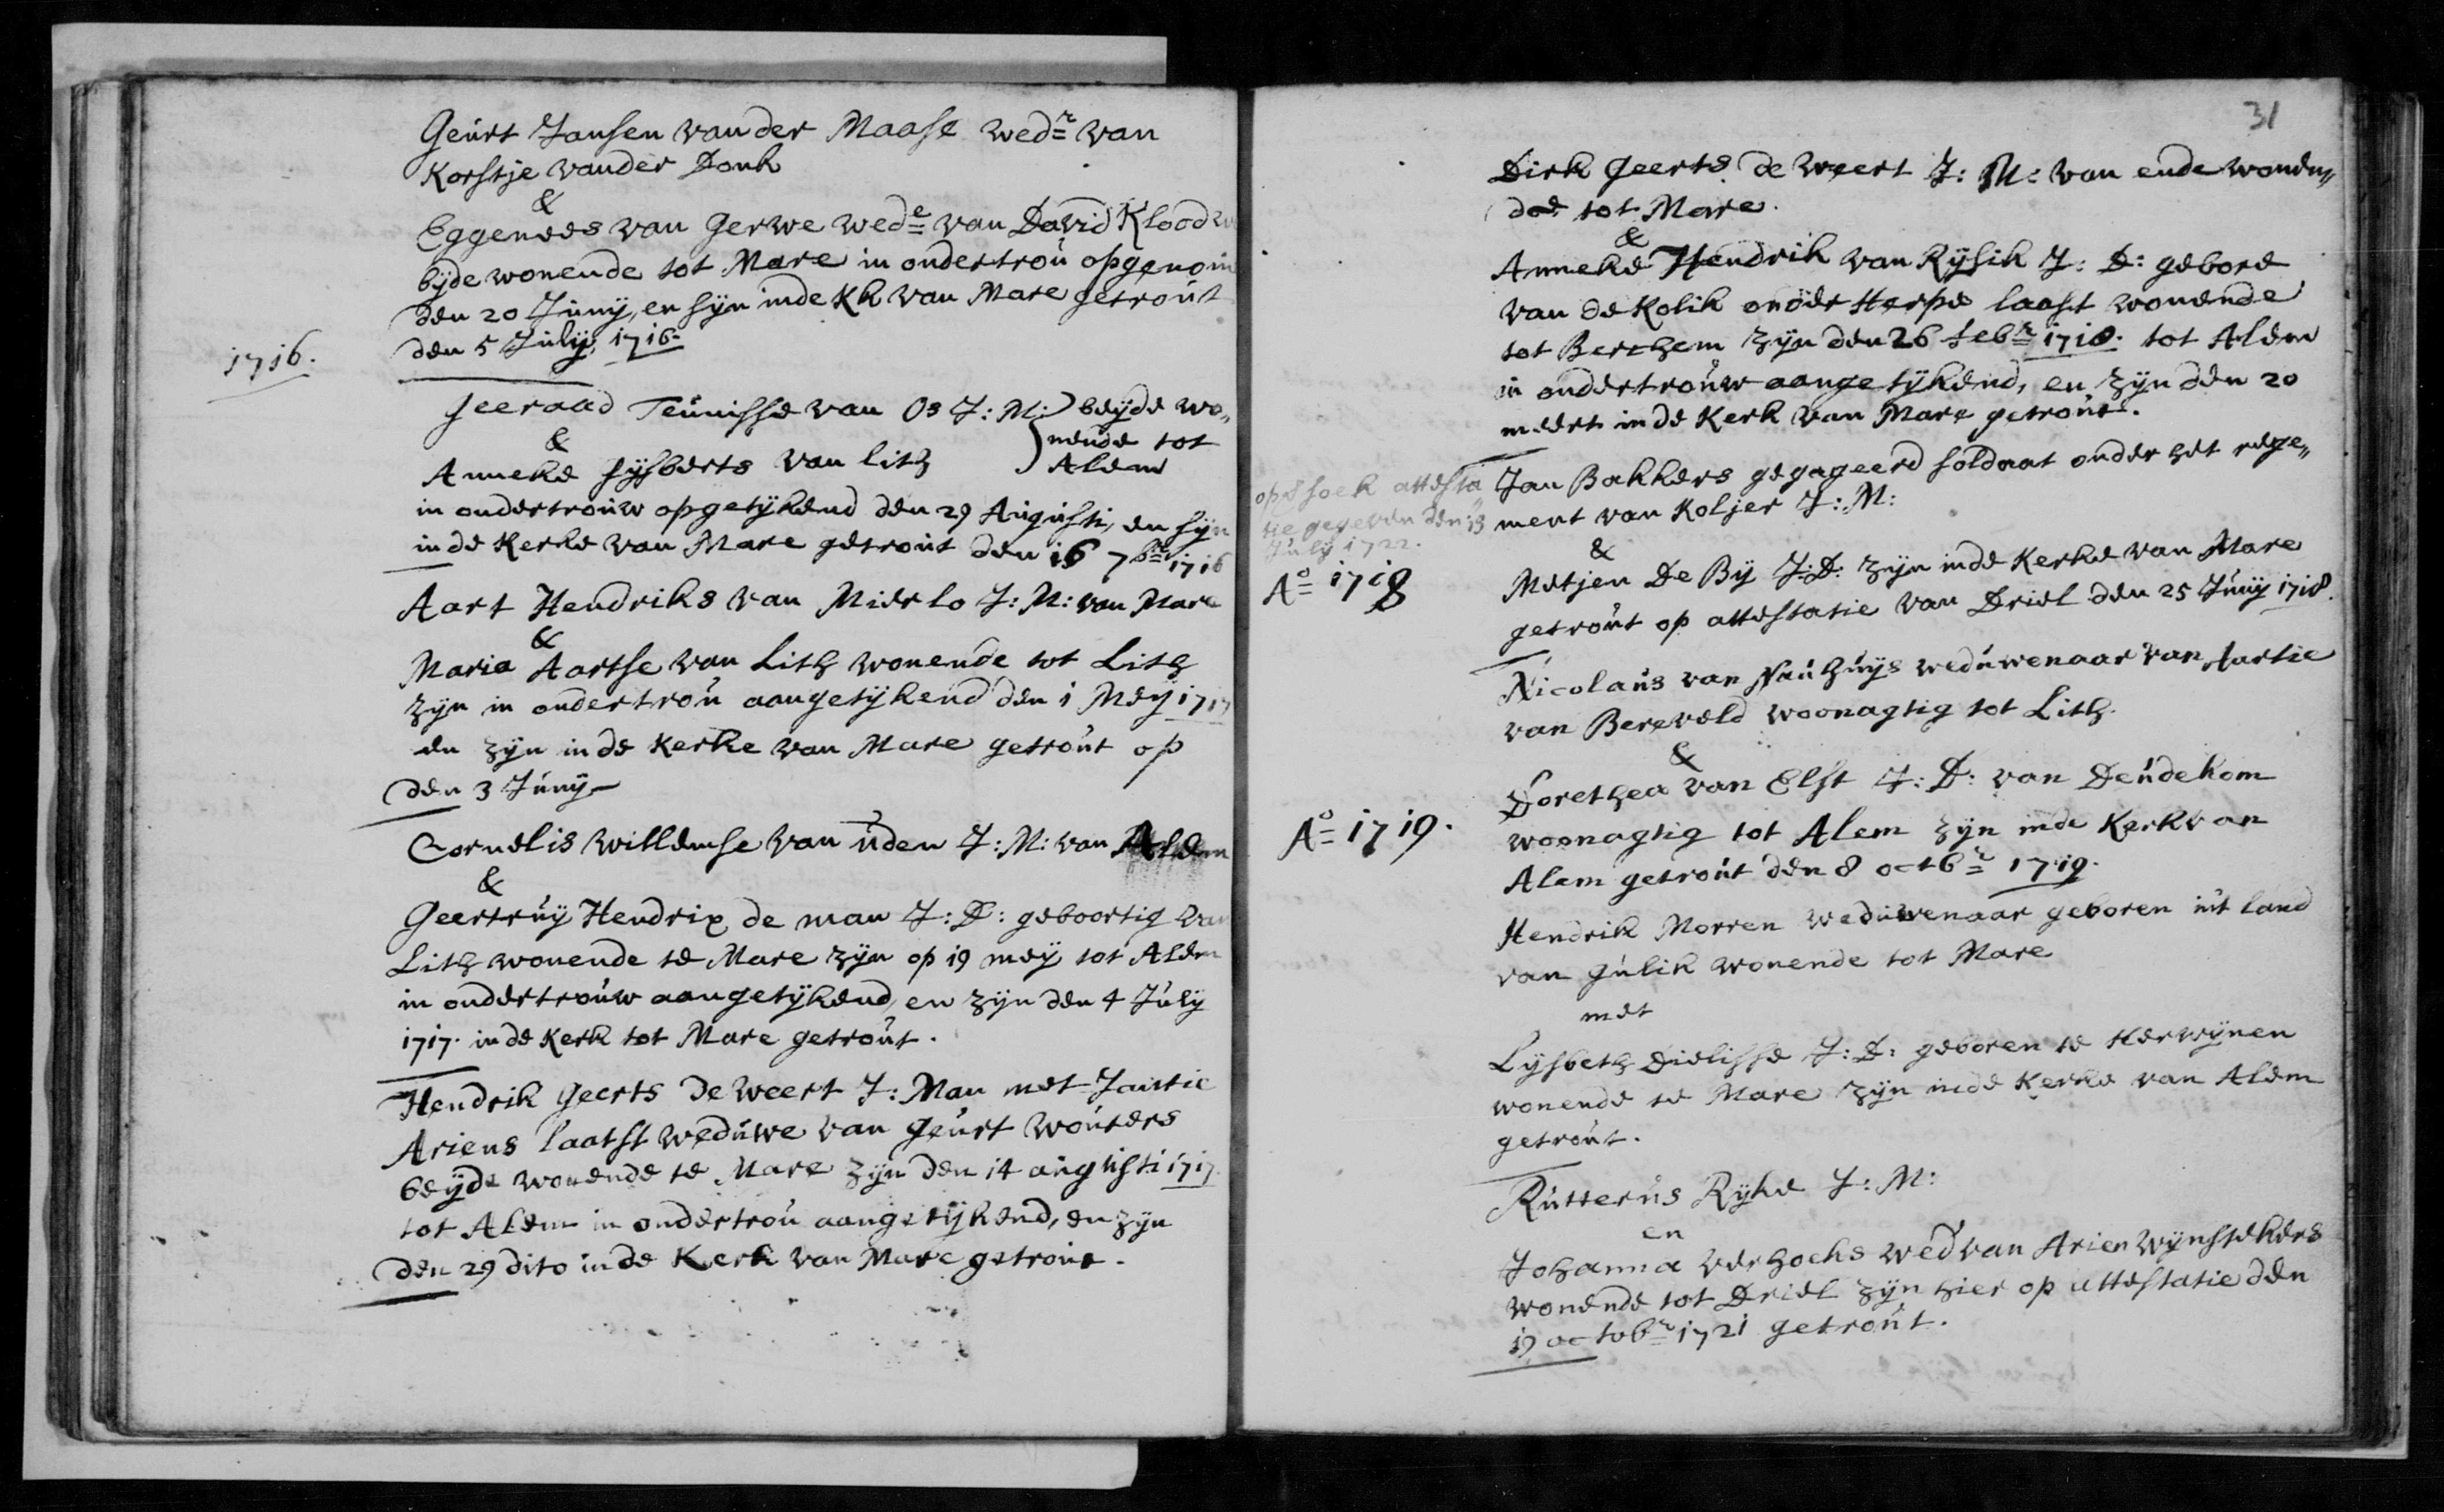 Geurt Jansen vander Maase wedr van
Korstje vander Donk
&
Eggenees van Gerwe wede van David
byde wonende tot Mare in ondertrou opgenom
den 20 Juny, en syn inde Kk van Mare getrout
den 5 July 1716.
1716.
Geeraad Teunisse van Os J: M: } beyde wo„
& } nende tot
Anneke Gysberts van Lith } Alem
in ondertrouw opgetykend den 29 Augusti, en syn
in de Kerke van Mare getrout den 16 7br 1716
Aart Hendriks van Mierlo J: M: van Mare
&
Maria Aartse van Lith wonende tot Lith
zyn in ondertrou aangetykend den 1 Mey 1717
en zyn in de Kerke van Mare getrout op
den 3 Juny
Cornelis Willemse van uden J: M: van Alem
&
Geertruy Hendrix de man J: D: geboortig van
Lith wonende te Mare zyn op 19 mey tot Alem
in ondertrouw aangetykend, en zyn den 4 July
1717. in de Kerk tot Mare getrout.
Hendrik Geerts de Weert J: Man met
Ariens laatst weduwe van Geurt Wouters
beyde wonende te Mare zyn den 14 augusti 1717.
tot Alem in ondertrou aangetykend, en zyn
den 29 dito in de Kerk van Mare getrout.
31
Dirk Geerts de Weert J: M: van ende wonen„
de tot Mare.
&
Anneke Hendrik van Rysik J: D: gebore
van de Kolik onder Herpe laast wonende
tot Berchem zyn den 26 febr 1718. tot Alem
in ondertrouw aangetykend, en zyn den 20
meert in de Kerk van Mare getrout.
Jan Bakkers gegageerd soldaat onder het rege„
ment van Koljer J: M:
op soek attesta
tie gegeven den 13
July 1722.
&
Ao 1718
Metjen De By J: D: zyn in de Kerke van Mare
getrout op attestatie van Driel den 25 Juny 1718.
Nicolaus van Nauhuys weduwenaar van Aartie
van Bereveld woonagtig tot Lith.
&
Dorethea van Elst J: D: van Deudekom
Ao 1719.
woonagtig tot Alem zyn inde Kerk van
Alem getrout den 8 octbr 1719.
Hendrik Morren weduwenaar geboren uit land
van Gulik wonende tot Mare
met
Lysbeth Dielisse J: D: geboren te Herwynen
wonende te Mare zyn inde Kerke van Alem
getrout.
Rutterus Ryke J: M:
en
Johanna verhoeks wed van Arien Wynstekers
wonende tot Driel zyn hier op attestatie den
19 octobr 1721 getrout.